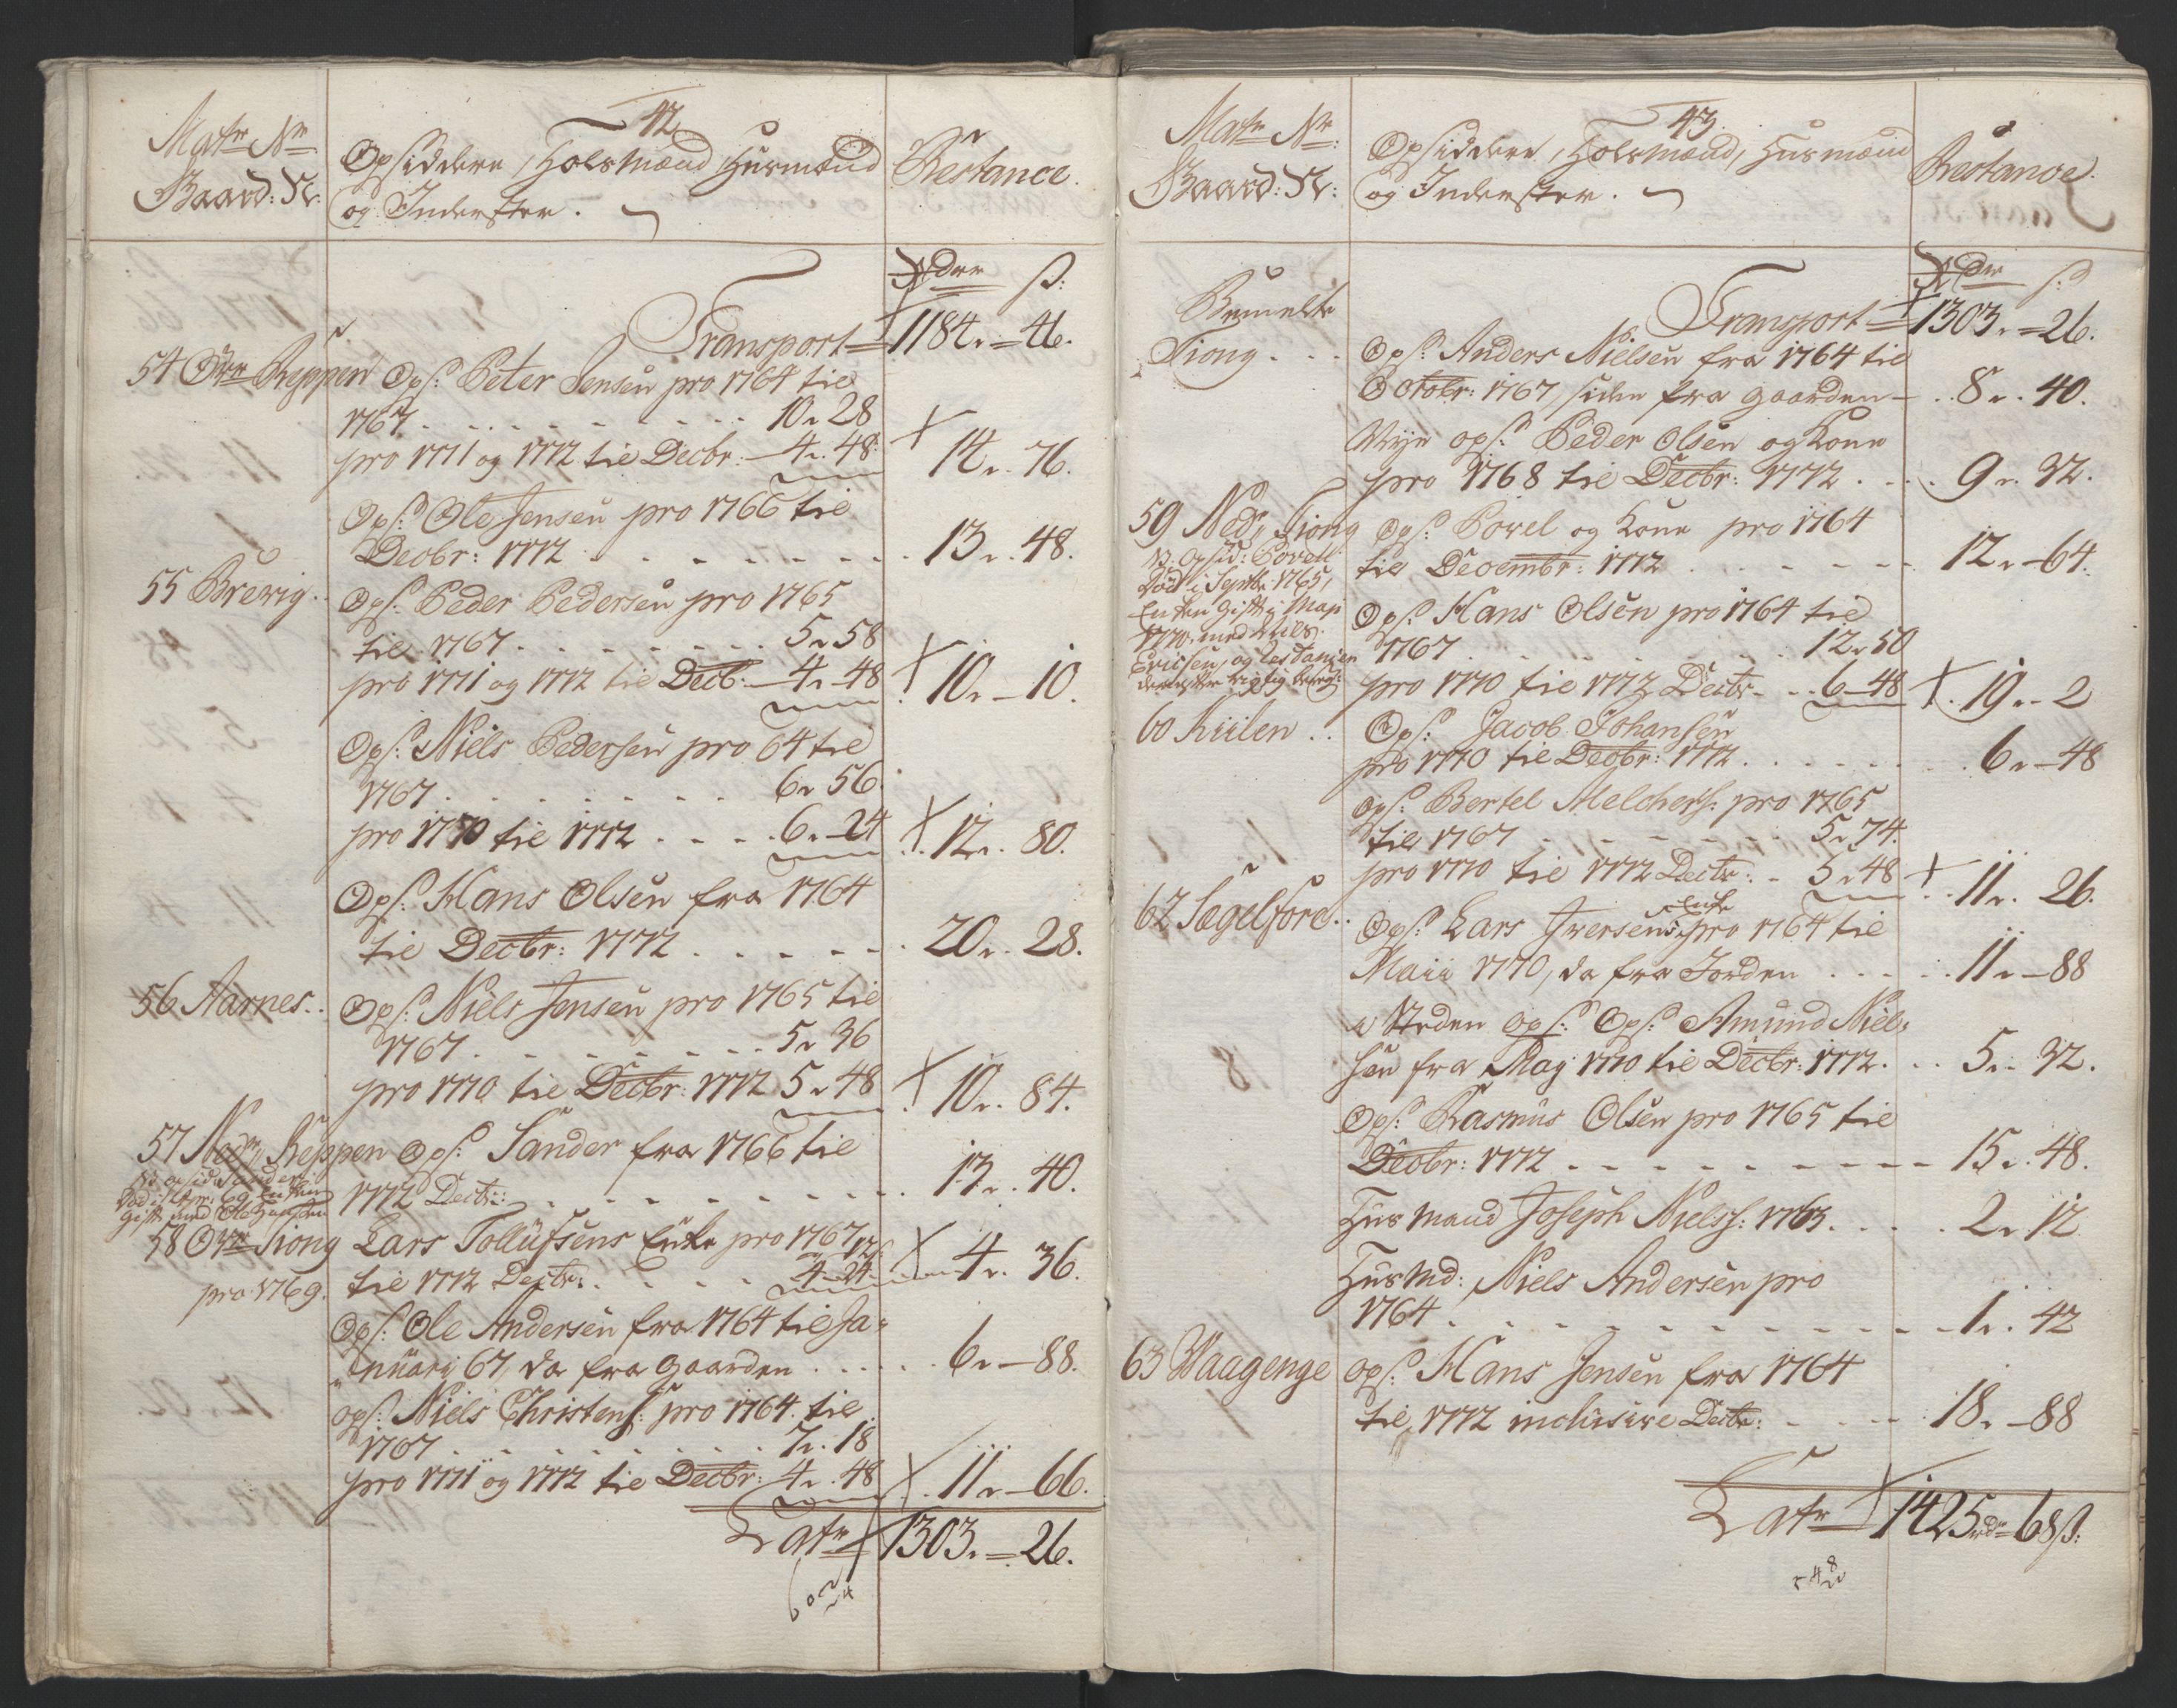 42
Matr Nr
Gaard: N:
Opsiddere, Holsmænd, Husmænd
og Inderster.
Restance.
Rdr ß:
Transport 1184 " 46.
54 Øvre Reppen Ops: Peter Jensen pro 1764 til
1767 . . . 10 " 28
pro 1771 og 1772 til Decbr: 4 " 48 14 " 76.
Ops: Ole Jensen pro 1766 til
Decbr: 1772 . . . 13 " 48.
55 Brevig. Ops: Peder Pedersen pro 1765
til 1767 . . . 5 " 58
pro 1771 og 1772 til Decb: 4 " 48 10 " 10.
Ops: Niels Pedersen pro 64 til
1767 . . . 6 " 56.
pro 1770 til 1772 . . . 6 " 24 12 " 80.
Ops: Hans Olsen fra 1764
til Decbr: 1772 . . . 20 " 28.
56 Aarnes. Ops: Niels Jensen pro 1765 til
1767 . . . 5 " 36
pro 1770 til Decbr: 1772 5 " 48 10 " 84.
57 Nedr Reppen Ops: Sander fra 1766 til
1772 Decbr: . . . 13 " 40.
NB opsid: Sander
Død i 69 Enken
Gift med Ole Hansen
58 Øvr Siong Lars Tollufsens Enke pro 1767 12ß
pro 1769. til 1772 Decbr: . . . 4 " 24 4 " 36.
Ops: Ole Andersen fra 1764 til Ja-
nuari 67, da fra Gaarden . . . 6 " 88.
ops: Niels Christens: pro 1764 til
1767 . . . 7 " 18
pro 1771 og 1772 til Decbr: 4 " 48 11 " 66.
Latr 1303 " 26.
43.
Matr Nr:
Gaard: N:
Opsiddere, Holsmænd, Husmænd
og Inderster.
Restance.
Rdr ß:
Transport 1303 " 26.
Bemelte
Siong . . . Ops: Anders Nielsen fra 1764 til
Octobr: 1767, siden fra gaarden 8 " 40.
Nye ops: Peder Olsen og Kone
pro 1768 til Decbr: 1772 . . . 9 " 32.
59 Nedr Siong Ops: Povel og Kone pro 1764
til Decembr: 1772 . . . 12 " 64.
NB Opsid: Povel
Død i Septbr 1765,
Enken gift i Maji
1770 med Niels
Ericsen, og
Ops: Hans Olsen pro 1764 til
1767 . . . 12 " 50
pro 1770 til 1772 Decbr . . 6 " 48 19 " 2
60 Kiilen . . Ops: Jacob Johansen
pro 1770 til Decbr: 1772 . . . 6 " 48
Ops: Bertel Melchers: pro 1765
til 1767 . . . 5 " 74.
pro 1770 til 1772 Decbr: . 5 " 48 11 " 26.
62 Segelfore . . Ops: Lars Iversens Enke pro 1764 til
Maii 1770, da fra Jorden . . . 11 " 88
i Steden ops: Ops: Amund Niel-
sen fra May 1770 til Decbr: 1772. . . 5 " 32.
Ops: Rasmus Olsen pro 1765 til
Decbr: 1772 . . . 15 " 48.
Husmand Joseph Nielss: 1765 . . . 2 " 12
Husmd: Niels Andersen pro
1764 . . . 1 " 42
63 Waagenge Ops: Hans Jensen fra 1764
til 1772 inclusive Decbr: . . . 18 " 88
Latr 1425 rdr 68ß: